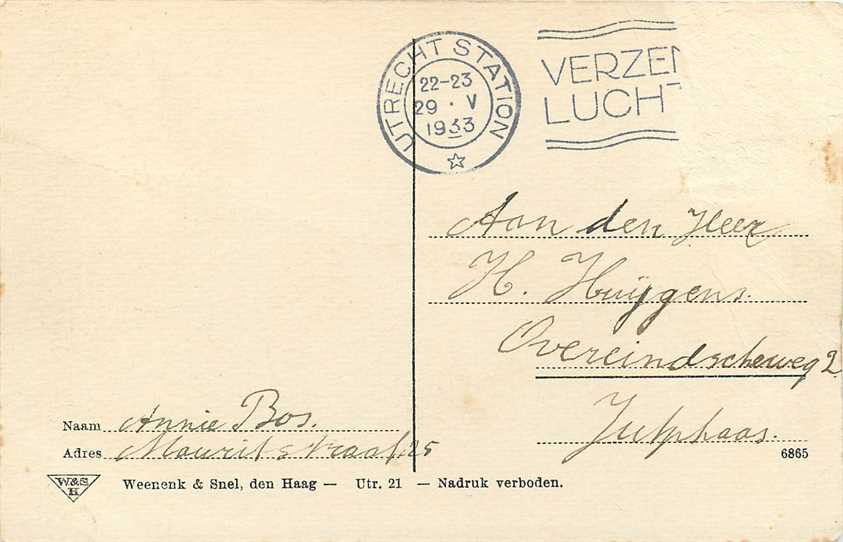 UTRECHT STATION
22-23
29 · V
1933
VERZEN
LUCHT
Aan den Heer
H. Huijgens.
Overeindscheweg 2
Jutphaas.
Naam Annie Bos.
Adres Mauritsstraat 25
6865
W&S
H
Weenenk & Snel, den Haag — Utr. 21 — Nadruk verboden.